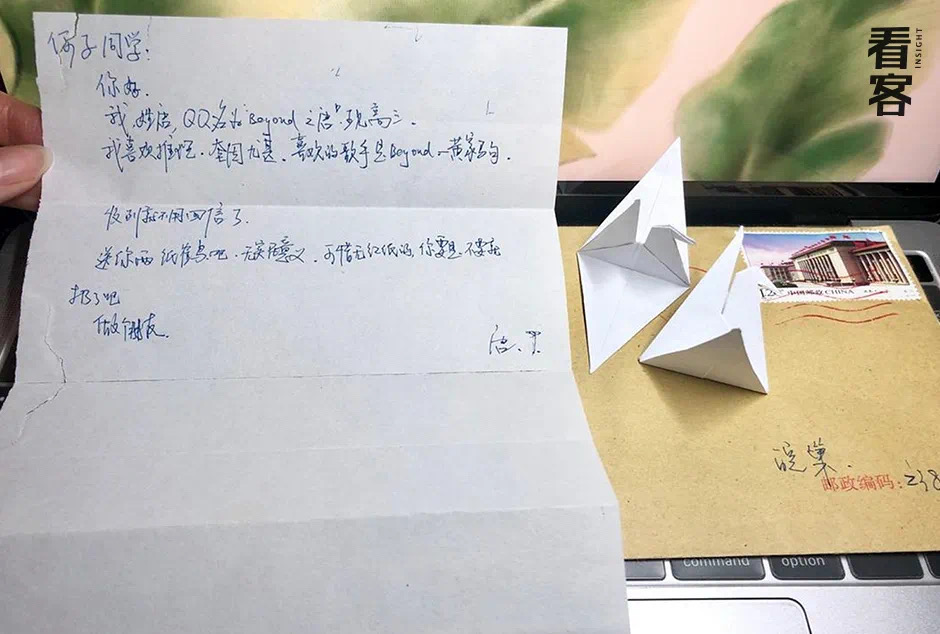 看客
INSIGHT
同学:
你好.
我姓唐,QQ名为"Beyond之唐",现高三.
我喜欢推理.喜欢的歌手是Beyond—黄家驹.
收到就不用回信了.
送你两纸鹤吧.无实意义.可惜无红纸的,你要是不要就
扔了吧
做个朋友.
中国邮政 CHINA
皖巢.
邮政编码: 238
command
option